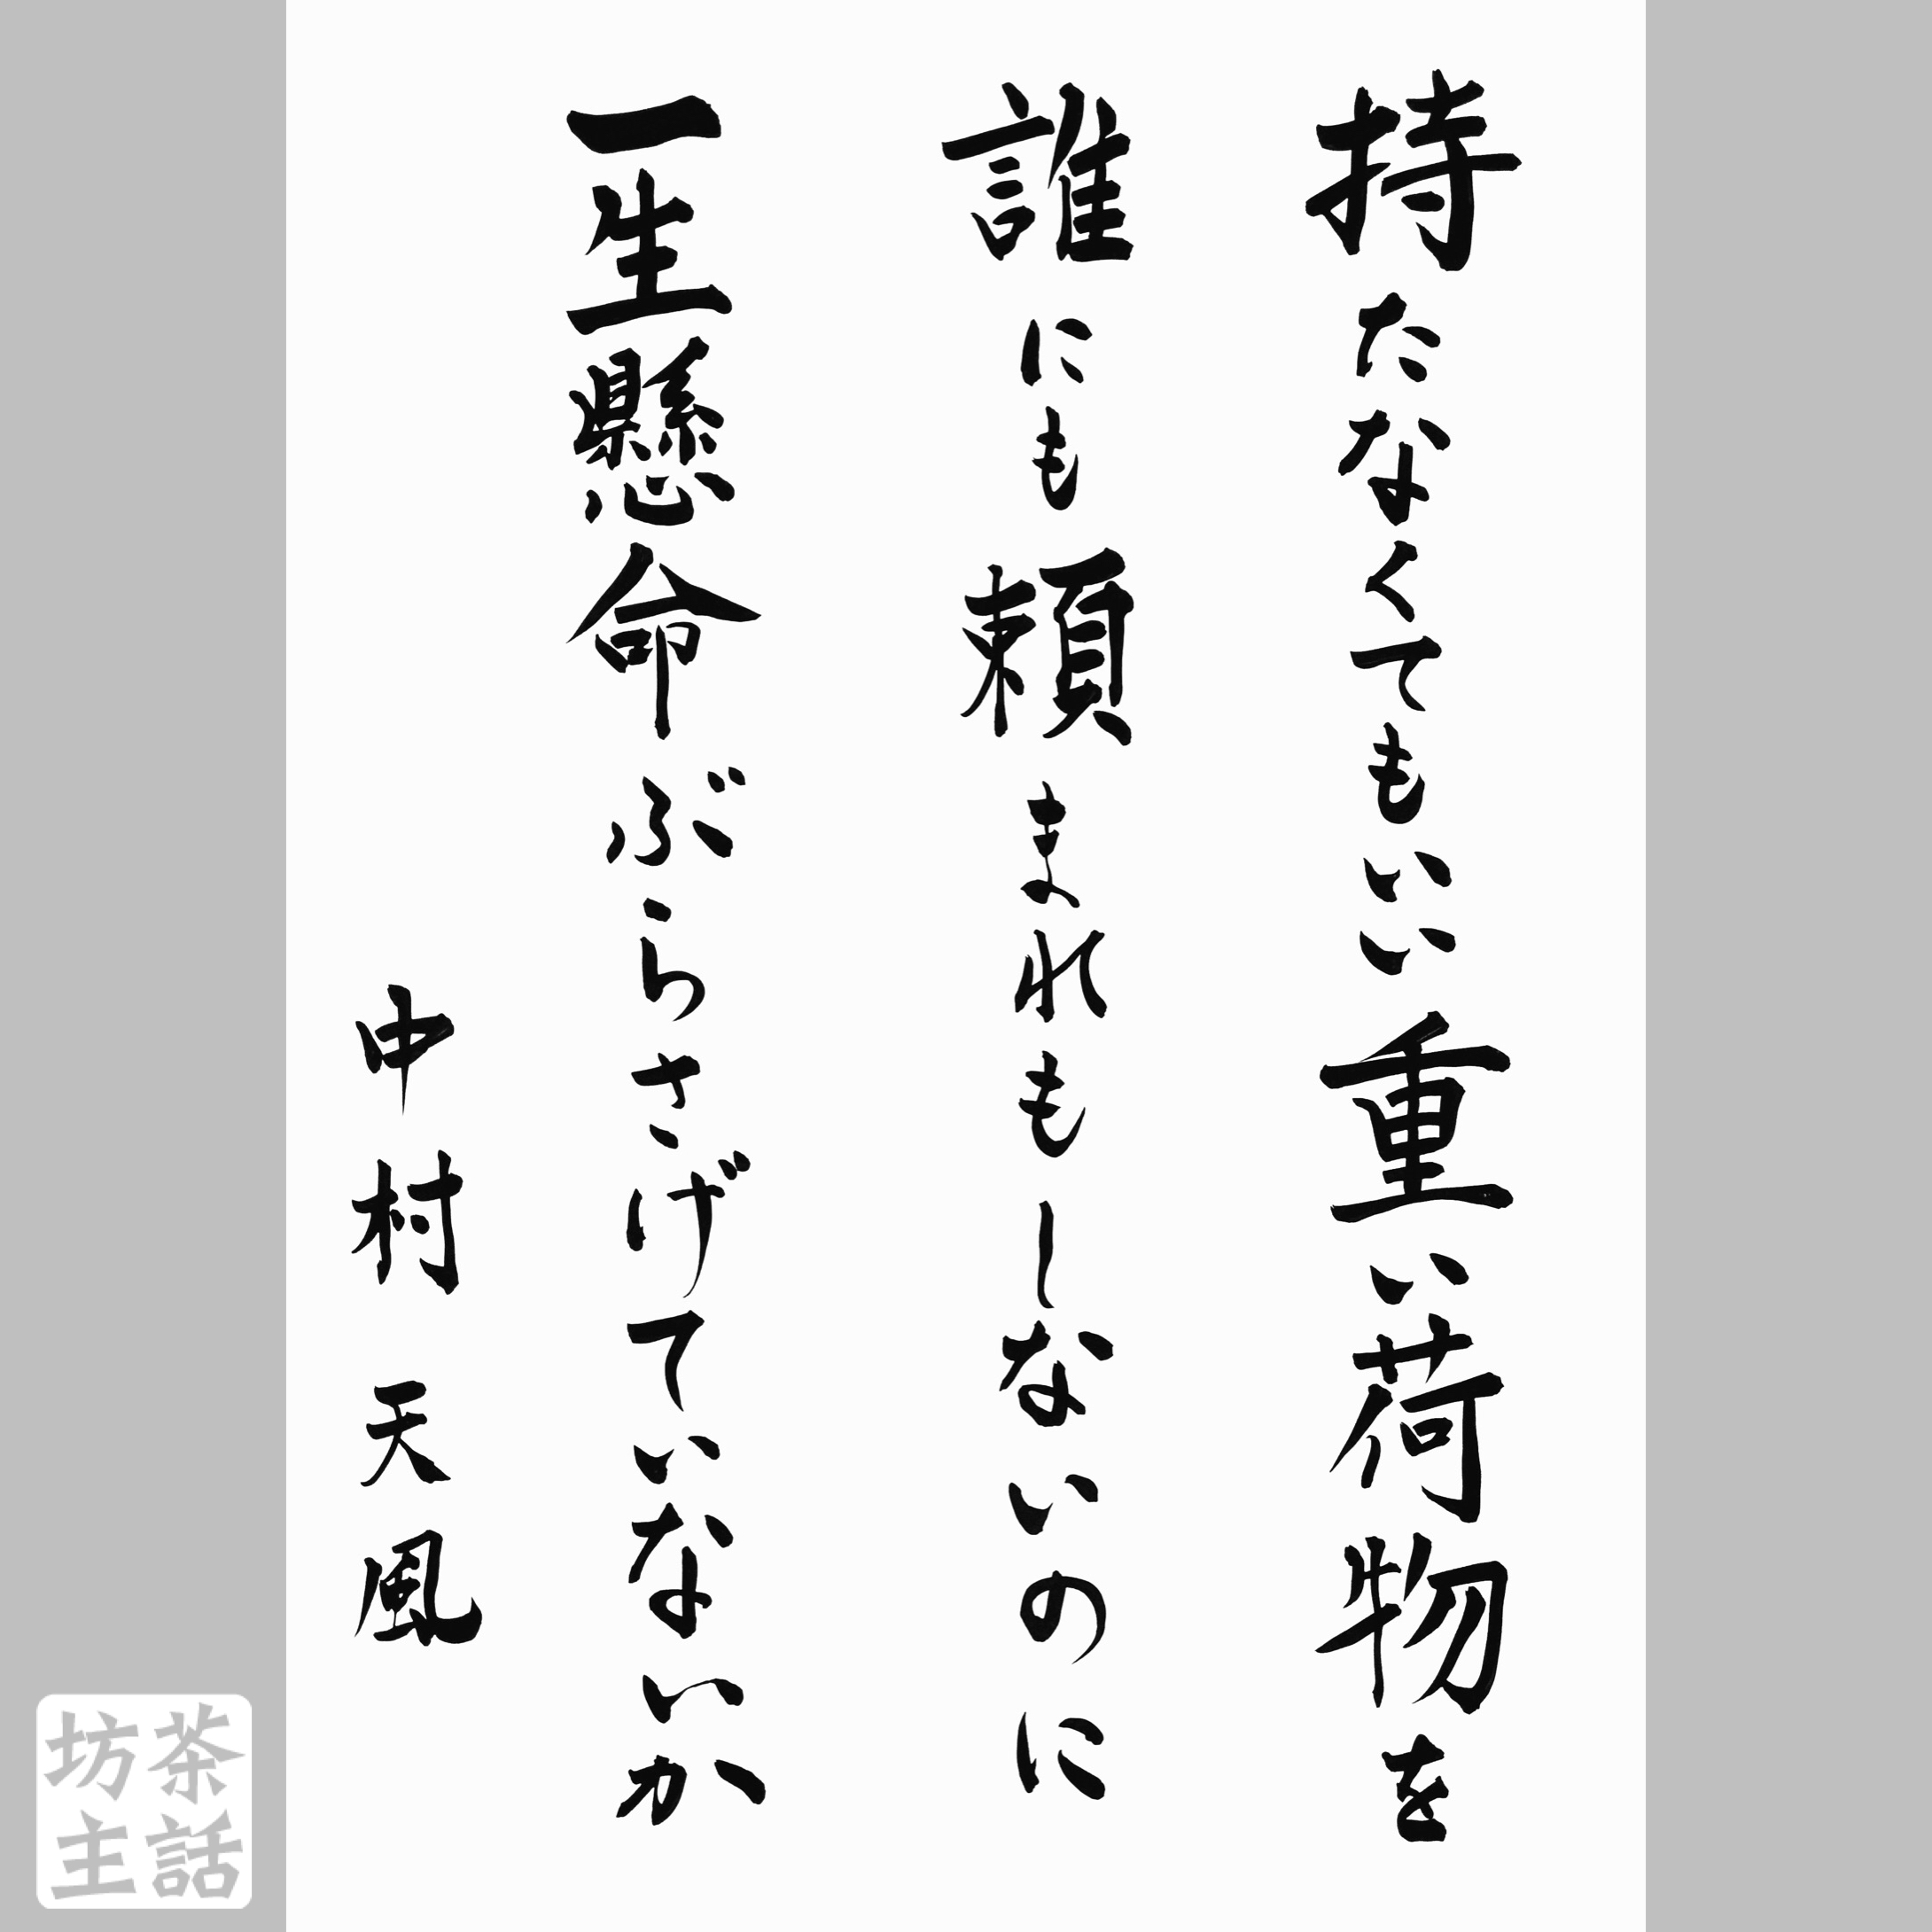 持たなくてもいい重い荷物を
誰にも頼まれもしないのに
一生懸命ぶらさげていないか
中村天風
茶話
坊主